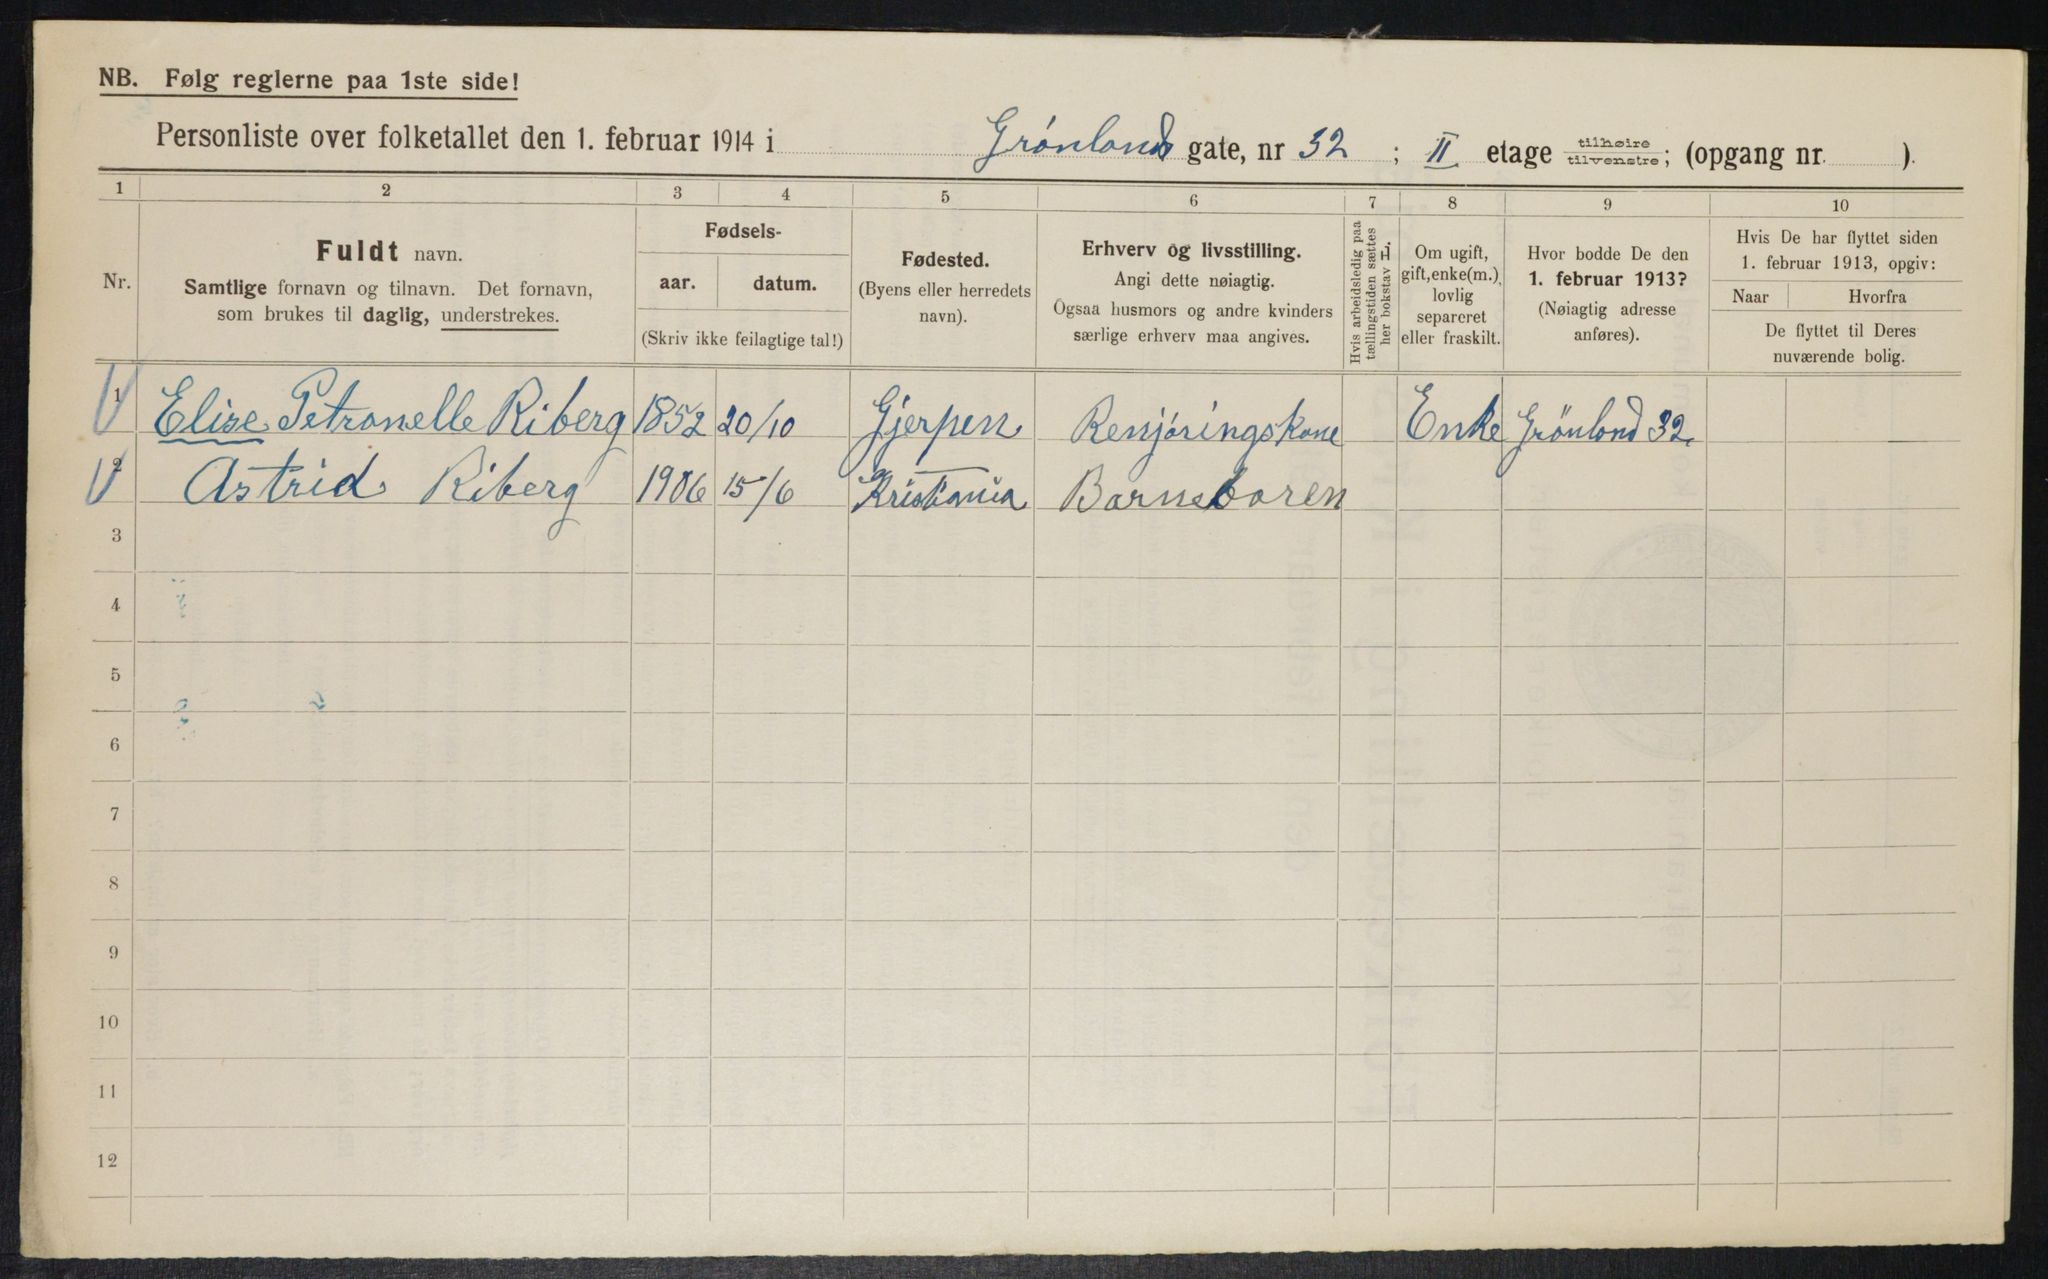 NB. Følg reglerne paa 1ste side!
Personliste over folketallet den 1. februar 1914 i Grønlands gate, nr 32 ; II etage tilhøire tilvenstre; (opgang nr. ).
1 2 3 4 5 6 7 8 9 10
Nr.
Fuldt navn.
Samtlige fornavn og tilnavn. Det fornavn,
som brukes til daglig, understrekes.
Fødsels-
aar. datum.
(Skriv ikke feilagtige tal!)
Fødested.
(Byens eller herredets
navn).
Erhverv og livsstilling.
Angi dette nøiagtig.
Ogsaa husmors og andre kvinders
særlige erhverv maa angives.
Hvis arbeidsledig paa
tællingstiden sættes
her bokstav L.
Om ugift,
gift, enke(m.),
lovlig
separeret
eller fraskilt.
Hvor bodde De den
1. februar 1913?
(Nøiagtig adresse
anføres).
Hvis De har flyttet siden
1. februar 1913, opgiv:
Naar Hvorfra
De flyttet til Deres
nuværende bolig.
1 Elise Petronelle Riberg 1852 20/10 Gjerpen Renjøringskone Enke Grönland 32.
2 Astrid Riberg 1906 15/6 Kristiania Barnebaren
3
4
5
6
7
8
9
10
11
12